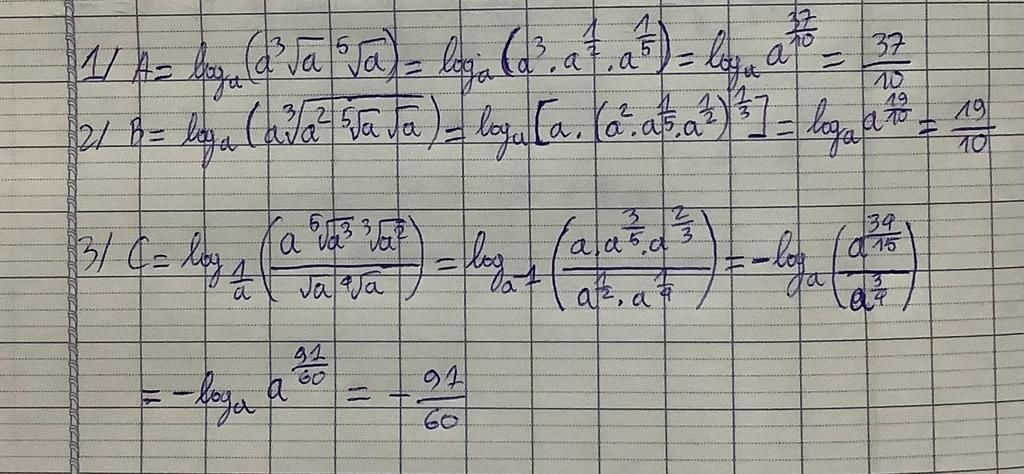 1/ A = logₐ(a³√a ⁵√a) = logₐ(a³.a^(1/2).a^(1/5)) = logₐ a^(37/10) = 37/10
2/ B = logₐ(a∛(a² ⁵√a √a)) = logₐ[a.(a².a^(1/5).a^(1/2))^(1/3)] = logₐ a^(19/10) = 19/10
3/ C = log_(1/a)((a ⁵√(a³) ∛(a²))/(√a ⁴√a)) = log_(a⁻¹)((a.a^(3/5).a^(2/3))/(a^(1/2).a^(1/4))) = -logₐ(a^(34/15)/a^(3/4))
= -logₐ a^(91/60) = -91/60